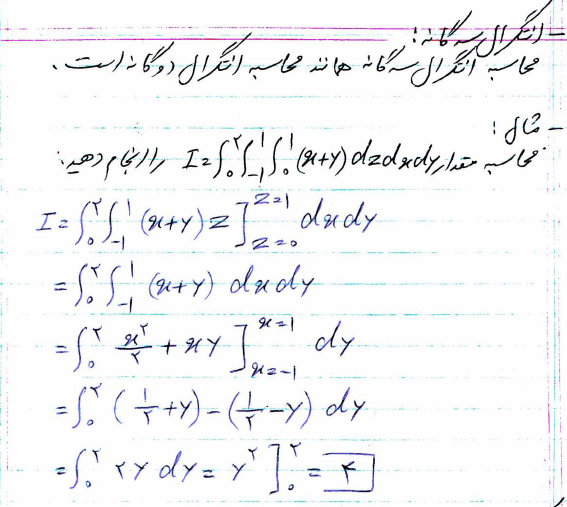 - انتگرال سه گانه:
محاسبه انتگرال سه گانه همانند محاسبه انتگرال دوگانه است.
- مثال:
محاسبه مقدار I=∫₀^۲∫₋₁^۱∫₀^۱ (x+y) dz dx dy را انجام دهید:
I=∫₀^۲∫₋₁^۱ (x+y) z ]_{z=0}^{z=1} dx dy
=∫₀^۲∫₋₁^۱ (x+y) dx dy
=∫₀^۲ x^۲/۲ + xy ]_{x=-1}^{x=1} dy
=∫₀^۲ (۱/۲+y)-(۱/۲-y) dy
=∫₀^۲ ۲y dy = y^۲ ]₀^۲ = ۴